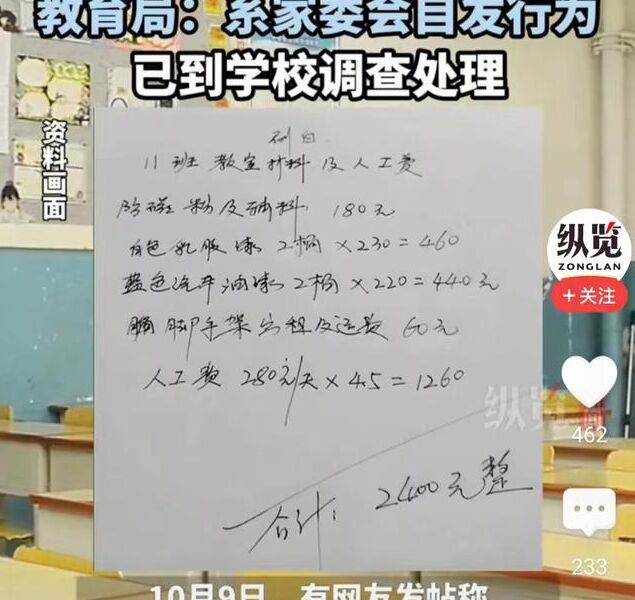 教育局：系家委会自发行为
已到学校调查处理
资料画面
11班 教室材料及人工费
180元
白色乳胶漆 2桶 ×230=460
蓝色汽车油漆 2桶 ×220=440元
脚手架 租及运费 60元
人工费 280元/天 ×4.5=1260
合计: 2400元整
纵览
纵览
ZONGLAN
+关注
462
233
10月9日，有网友发帖称